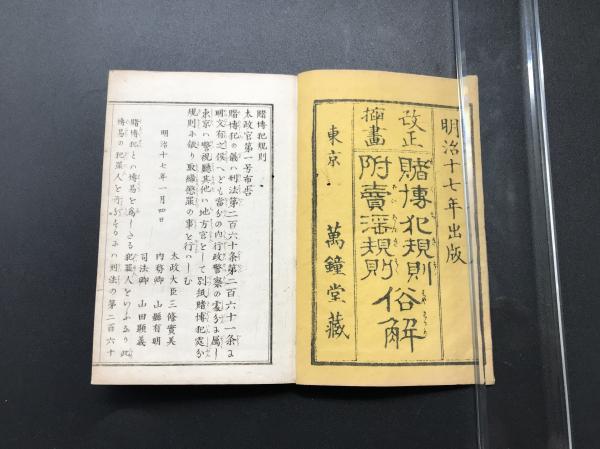 明治十七年出版
改正
插畫
賭博犯規則
附賣淫規則
俗解
東京
萬鐘堂藏
賭博犯規則
太政官第一号布告
賭博犯の儀ハ刑法第二百六十條第二百六十一條ま
明文有之候へども當分の内行政警察の處分ま属し
東京ハ警視廳其他ハ地方官として別紙賭博犯處分
規則ま依り取締懲罪の事と行ハしむ
明治十七年一月四日
太政大臣三條實美
内務卿 山縣有明
司法卿 山田顕義
賭博犯とハ博奕を為したる犯罪人をいふなり此
博奕の犯罪人を
ハ刑法の第二百六十